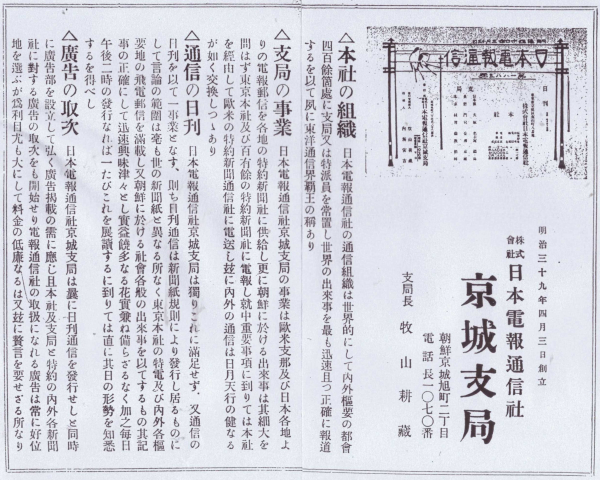 明治三十九年四月三日創立
株式會社 日本電報通信社
京城支局
朝鮮京城旭町二丁目
電話長一〇七〇番
支局長 牧山耕藏
日本電報通信
△本社の組織 日本電報通信社の通信組織は世界的にして内外樞要の都會
四百餘箇處に支局又は特派員を常置し世界の出來事を最も迅速且つ正確に報道
するを以て夙に東洋通信界覇王の稱あり
△支局の事業 日本電報通信社京城支局の事業は歐米支那及び日本各地よ
りの電報郵信を各地の特約新聞社に供給し更に朝鮮に於ける出來事は其細大を
問はず東京本社及び百有餘の特約新聞社に電報し就中重要事項に到りては本社
を經由して歐米の特約新聞通信社に電送し玆に内外の通信は日月天行の健なる
が如く交換しつゝあり
△通信の日刊 日本電報通信社京城支局は獨りこれに滿足せず、又通信の
日刊を以て一事業となす、則ち日刊通信は新聞紙規則により發行し居るものに
して言論の範圍は毫も他の新聞紙と異なる所なく東京本社の特電及び内外各樞
要地の飛電郵信を滿載し又朝鮮に於ける社會各般の出來事を以てするもの其記
事の正確にして迅速興味津々として實益饒多なる花實兼ね備らざるなく加之每日
午後二時の發行なれば一たびこれを展讀するに到りては直に其日の形勢を知悉
するを得べし
△廣告の取次 日本電報通信社京城支局は曩に日刊通信を發行せしと同時
に廣告部を設立して弘く廣告揭載の需に應じ且本社及支局と特約の内外各新聞
社に對する廣告の取次をも開始せり電報通信社の取扱になれる廣告は常に好位
地を選ぶが爲利目尤も大にして料金の低廉なるは又玆に贅言を要せざる所なり